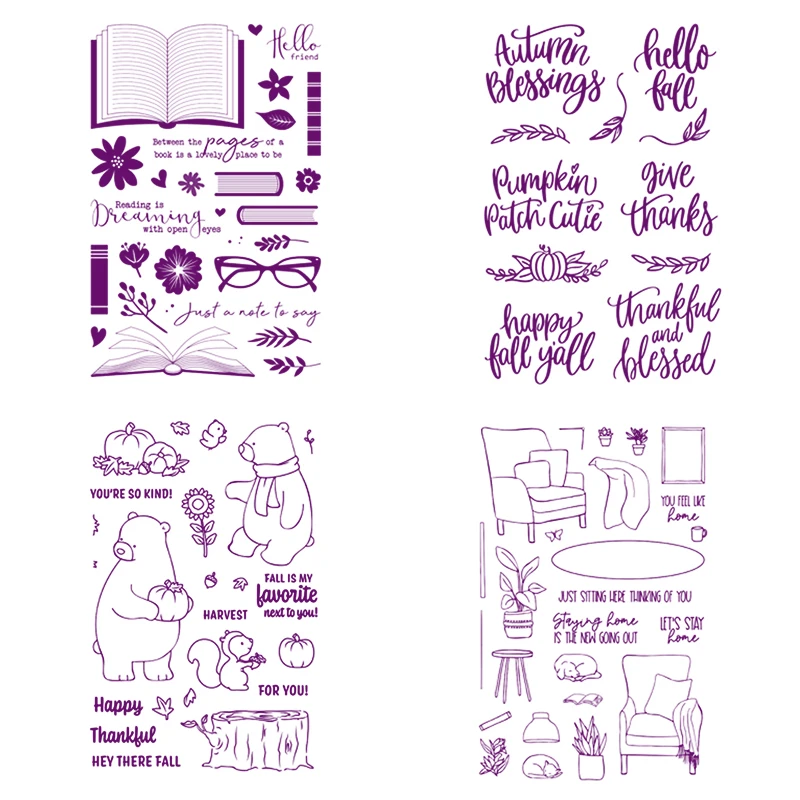 Hello
friend
Between the pages of a
book is a lovely place to be
Reading is
Dreaming
with open eyes
Just a note to say
Autumn
Blessings
hello
fall
Pumpkin
Patch Cutie
give
thanks
happy
fall y'all
thankful
and
blessed
YOU'RE SO KIND!
FALL IS MY
favorite
next to you!
HARVEST
FOR YOU!
Happy
Thankful
HEY THERE FALL
YOU FEEL LIKE
home
JUST SITTING HERE THINKING OF YOU
Staying home
IS THE NEW GOING OUT
LET'S STAY
home